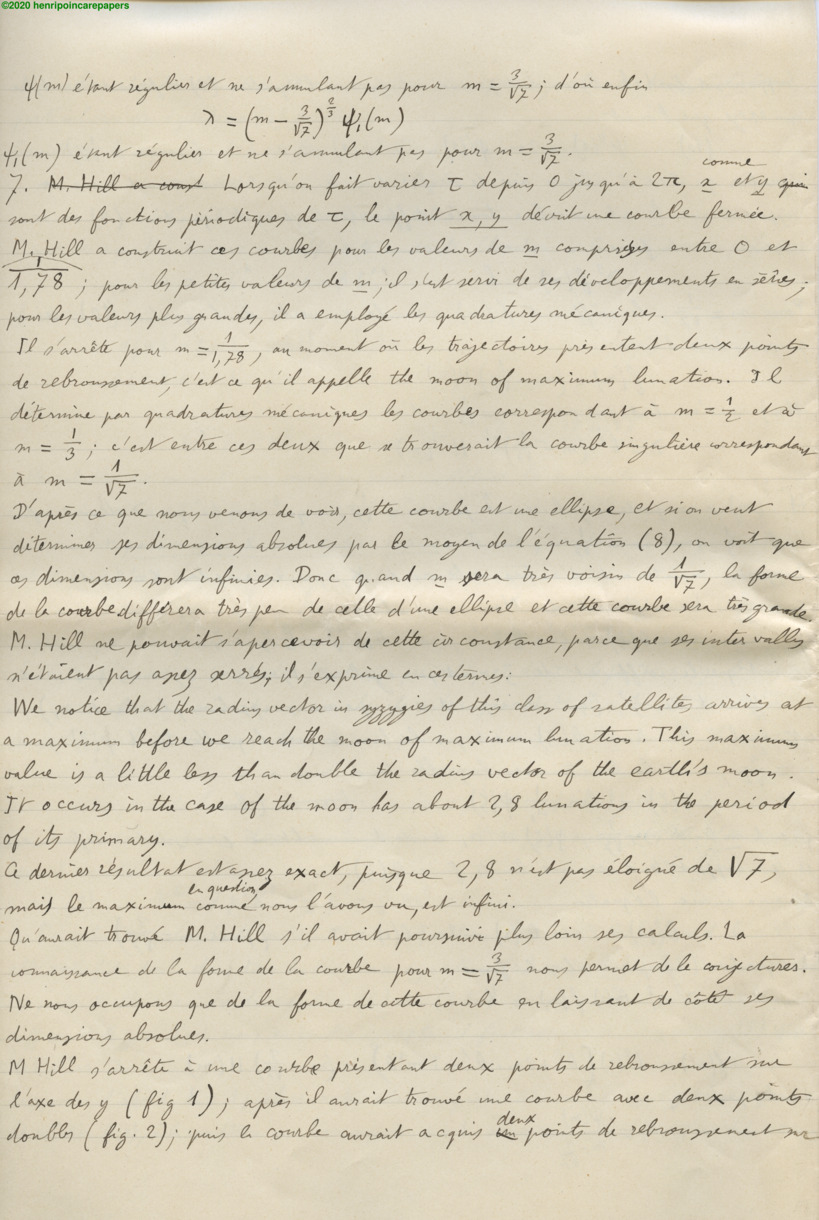 ©2020 henripoincarepapers
ψ(m) étant régulier et ne s'annulant pas pour m = 3/√7 ; d'où enfin
λ = (m − 3/√7)^{2/3} ψ₁(m)
ψ₁(m) étant régulier et ne s'annulant pas pour m = 3/√7.
comme
7. M. Hill a const Lorsqu'on fait varier τ depuis 0 jusqu'à 2π, x et y
sont des fonctions périodiques de τ, le point x, y décrit une courbe fermée.
M. Hill a construit ces courbes pour les valeurs de m comprises entre 0 et
1/1,78 ; pour les petites valeurs de m ; il s'est servi de ses développements en séries ;
pour les valeurs plus grandes, il a employé les quadratures mécaniques.
Il s'arrête pour m = 1/1,78, au moment où les trajectoires présentent deux points
de rebroussement, c'est ce qu'il appelle the moon of maximum lunation. Il
détermine par quadratures mécaniques les courbes correspondant à m = 1/2 et à
m = 1/3 ; c'est entre ces deux que se trouverait la courbe singulière correspondant
à m = 1/√7.
D'après ce que nous venons de voir, cette courbe est une ellipse, et si on veut
déterminer ses dimensions absolues par le moyen de l'équation (8), on voit que
ces dimensions sont infinies. Donc quand m sera très voisin de 1/√7, la forme
de la courbe différera très peu de celle d'une ellipse et cette courbe sera très grande.
M. Hill ne pouvait s'apercevoir de cette circonstance, parce que ses intervalles
n'étaient pas assez serrés ; il s'exprime en ces termes :
We notice that the radius vector in syzygies of this class of satellites arrives at
a maximum before we reach the moon of maximum lunation. This maximum
value is a little less than double the radius vector of the earth's moon.
It occurs in the case of the moon has about 2,8 lunations in the period
of its primary.
Ce dernier résultat est assez exact, puisque 2,8 n'est pas éloigné de √7,
en question
mais le maximum comme nous l'avons vu, est infini.
Qu'aurait trouvé M. Hill s'il avait poursuivi plus loin ses calculs. La
connaissance de la forme de la courbe pour m = 3/√7 nous permet de le conjecturer.
Ne nous occupons que de la forme de cette courbe en laissant de côté ses
dimensions absolues.
M Hill s'arrête à une courbe présentant deux points de rebroussement sur
l'axe des y (fig 1) ; après il aurait trouvé une courbe avec deux points
deux
doubles (fig. 2) ; puis la courbe aurait acquis un points de rebroussement sur